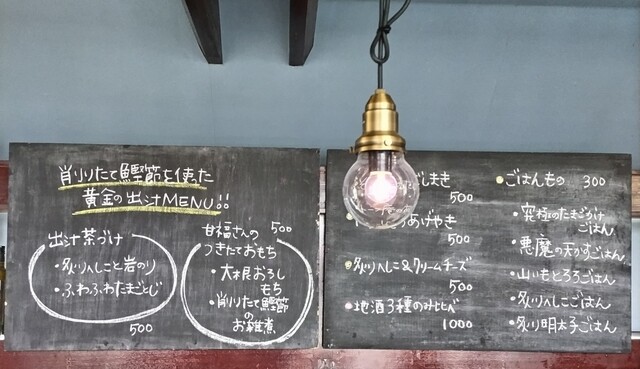 削りたて鰹節を使った
黄金の出汁MENU!!
出汁茶づけ
・炙りへしこと岩のり
・ふわふわたまごとじ
500
甘福さんの 500
つきたておもち
・大根おろし
もち
・削りたて鰹節
の
お雑煮
しまき
500
あげやき
500
・炙りへしこ&クリームチーズ
500
・地酒3種のみ比べ
1000
・ごはんもの 300
・究極のたまごかけ
ごはん
・悪魔の天かすごはん
・山いもとろろごはん
・炙りへしこごはん
・炙り明太子ごはん